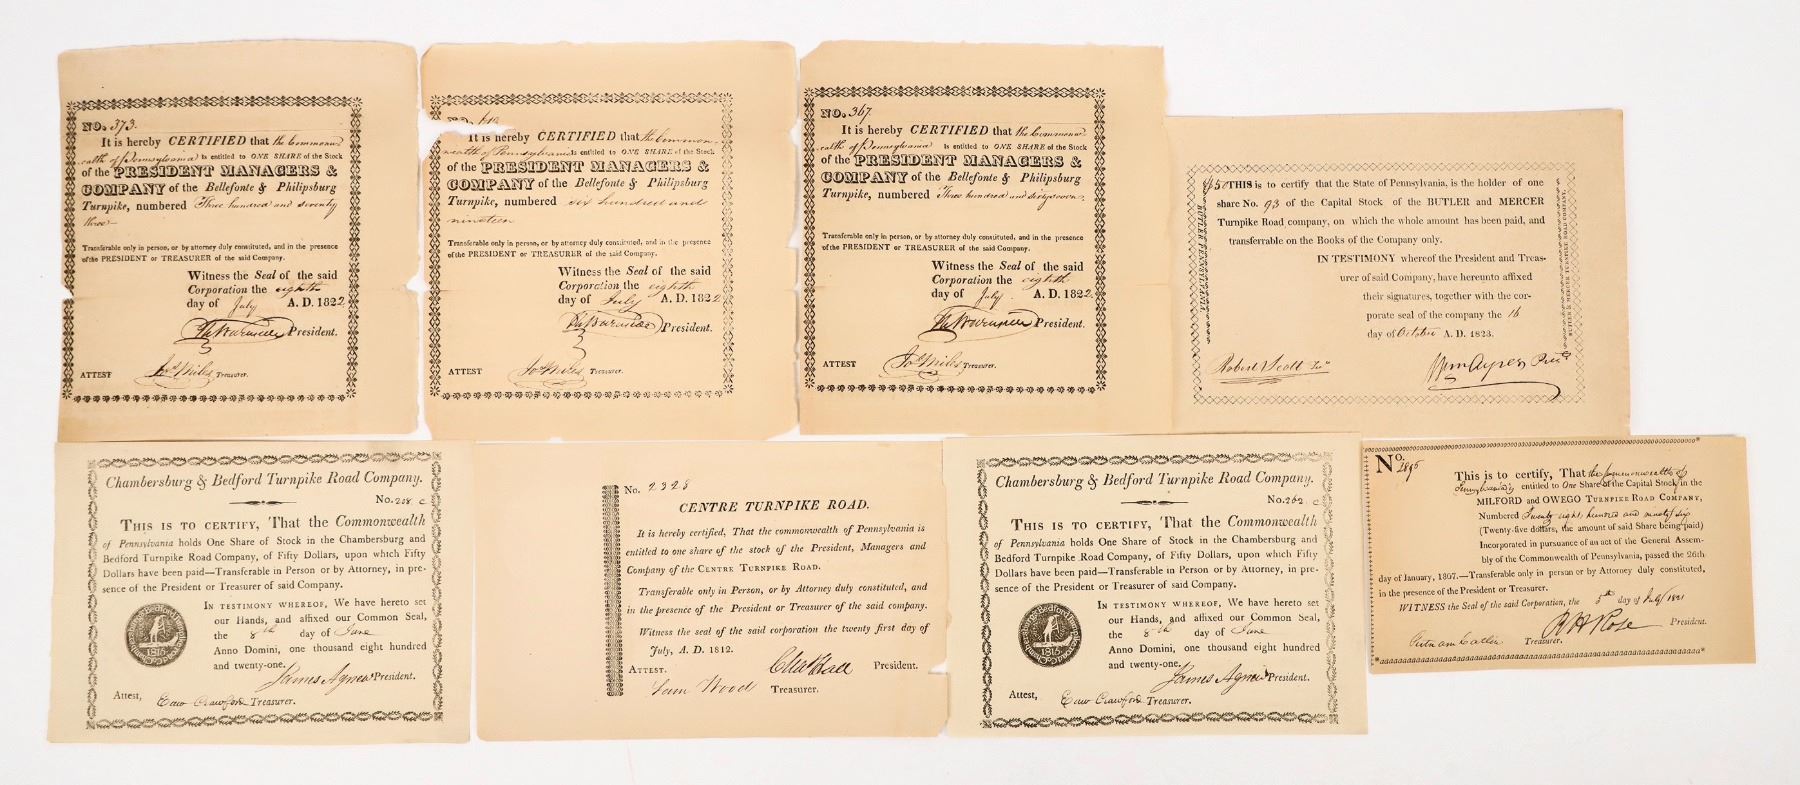 No. 373.
It is hereby CERTIFIED that the Commonw-
ealth of Pennsylvania is entitled to ONE SHARE of the Stock
of the PRESIDENT MANAGERS &
COMPANY of the Bellefonte & Philipsburg
Turnpike, numbered Three hundred and seventy
three
Transferable only in person, or by attorney duly constituted, and in the presence
of the PRESIDENT or TREASURER of the said Company.
Witness the Seal of the said
Corporation the eighth
day of July A. D. 1822
President.
ATTEST Jos Miles Treasurer.
It is hereby CERTIFIED that the Common-
wealth of Pennsylvania is entitled to ONE SHARE of the Stock
of the PRESIDENT MANAGERS &
COMPANY of the Bellefonte & Philipsburg
Turnpike, numbered six hundred and
nineteen
Transferable only in person, or by attorney duly constituted, and in the presence
of the PRESIDENT or TREASURER of the said Company.
Witness the Seal of the said
Corporation the eighth
day of July A. D. 1822
President.
ATTEST Jos Miles Treasurer.
No. 367.
It is hereby CERTIFIED that the Commonw-
ealth of Pennsylvania is entitled to ONE SHARE of the Stock
of the PRESIDENT MANAGERS &
COMPANY of the Bellefonte & Philipsburg
Turnpike, numbered Three hundred and sixty seven,
Transferable only in person, or by attorney duly constituted, and in the presence
of the PRESIDENT or TREASURER of the said Company.
Witness the Seal of the said
Corporation the eighth
day of July A. D. 1822
President.
ATTEST Jos Miles Treasurer.
BUTLER PENNSYLVANIA.
THIS is to certify that the State of Pennsylvania, is the holder of one
share No. 93 of the Capital Stock of the BUTLER and MERCER
Turnpike Road company, on which the whole amount has been paid, and
transferrable on the Books of the Company only.
IN TESTIMONY whereof the President and Treas-
urer of said Company, have hereunto affixed
their signatures, together with the cor-
porate seal of the company the 16
day of October A. D. 1823.
Robert Scott Wm Ayres Prest
BUTLER MERCER TURNPIKE ROAD COMPANY.
Chambersburg & Bedford Turnpike Road Company.
No. 208. C
THIS IS TO CERTIFY, That the Commonwealth
of Pennsylvania holds One Share of Stock in the Chambersburg and
Bedford Turnpike Road Company, of Fifty Dollars, upon which Fifty
Dollars have been paid—Transferable in Person or by Attorney, in pre-
sence of the President or Treasurer of said Company.
IN TESTIMONY WHEREOF, We have hereto set
our Hands, and affixed our Common Seal,
the 8th day of June
Anno Domini, one thousand eight hundred
and twenty-one.
1815
James Agnew President.
Attest, Edw Crawford Treasurer.
No. 2328
CENTRE TURNPIKE ROAD.
It is hereby certified, That the commonwealth of Pennsylvania is
entitled to one share of the stock of the President, Managers and
Company of the CENTRE TURNPIKE ROAD.
Transferable only in Person, or by Attorney duly constituted, and
in the presence of the President or Treasurer of the said company.
Witness the seal of the said corporation the twenty first day of
July, A. D. 1812.
Chas Hall President.
ATTEST.
Sam Wood Treasurer.
Chambersburg & Bedford Turnpike Road Company.
No. 262. C
THIS IS TO CERTIFY, That the Commonwealth
of Pennsylvania holds One Share of Stock in the Chambersburg and
Bedford Turnpike Road Company, of Fifty Dollars, upon which Fifty
Dollars have been paid—Transferable in Person or by Attorney, in pre-
sence of the President or Treasurer of said Company.
IN TESTIMONY WHEREOF, We have hereto set
our Hands, and affixed our Common Seal,
the 8th day of June
Anno Domini, one thousand eight hundred
and twenty-one.
1815
James Agnew President.
Attest, Edw Crawford Treasurer.
No.
This is to certify, That the Commonwealth of
Pennsylvania is entitled to One Share of the Capital Stock in the
MILFORD and OWEGO TURNPIKE ROAD COMPANY,
Numbered Twenty eight hundred and ninety six
(Twenty-five dollars, the amount of said Share being paid)
Incorporated in pursuance of an act of the General Assem-
bly of the Commonwealth of Pennsylvania, passed the 26th
day of January, 1807.—Transferable only in person or by Attorney duly constituted,
in the presence of the President or Treasurer.
WITNESS the Seal of the said Corporation, the 5th day of July 1821
R H Rose President.
Treasurer.